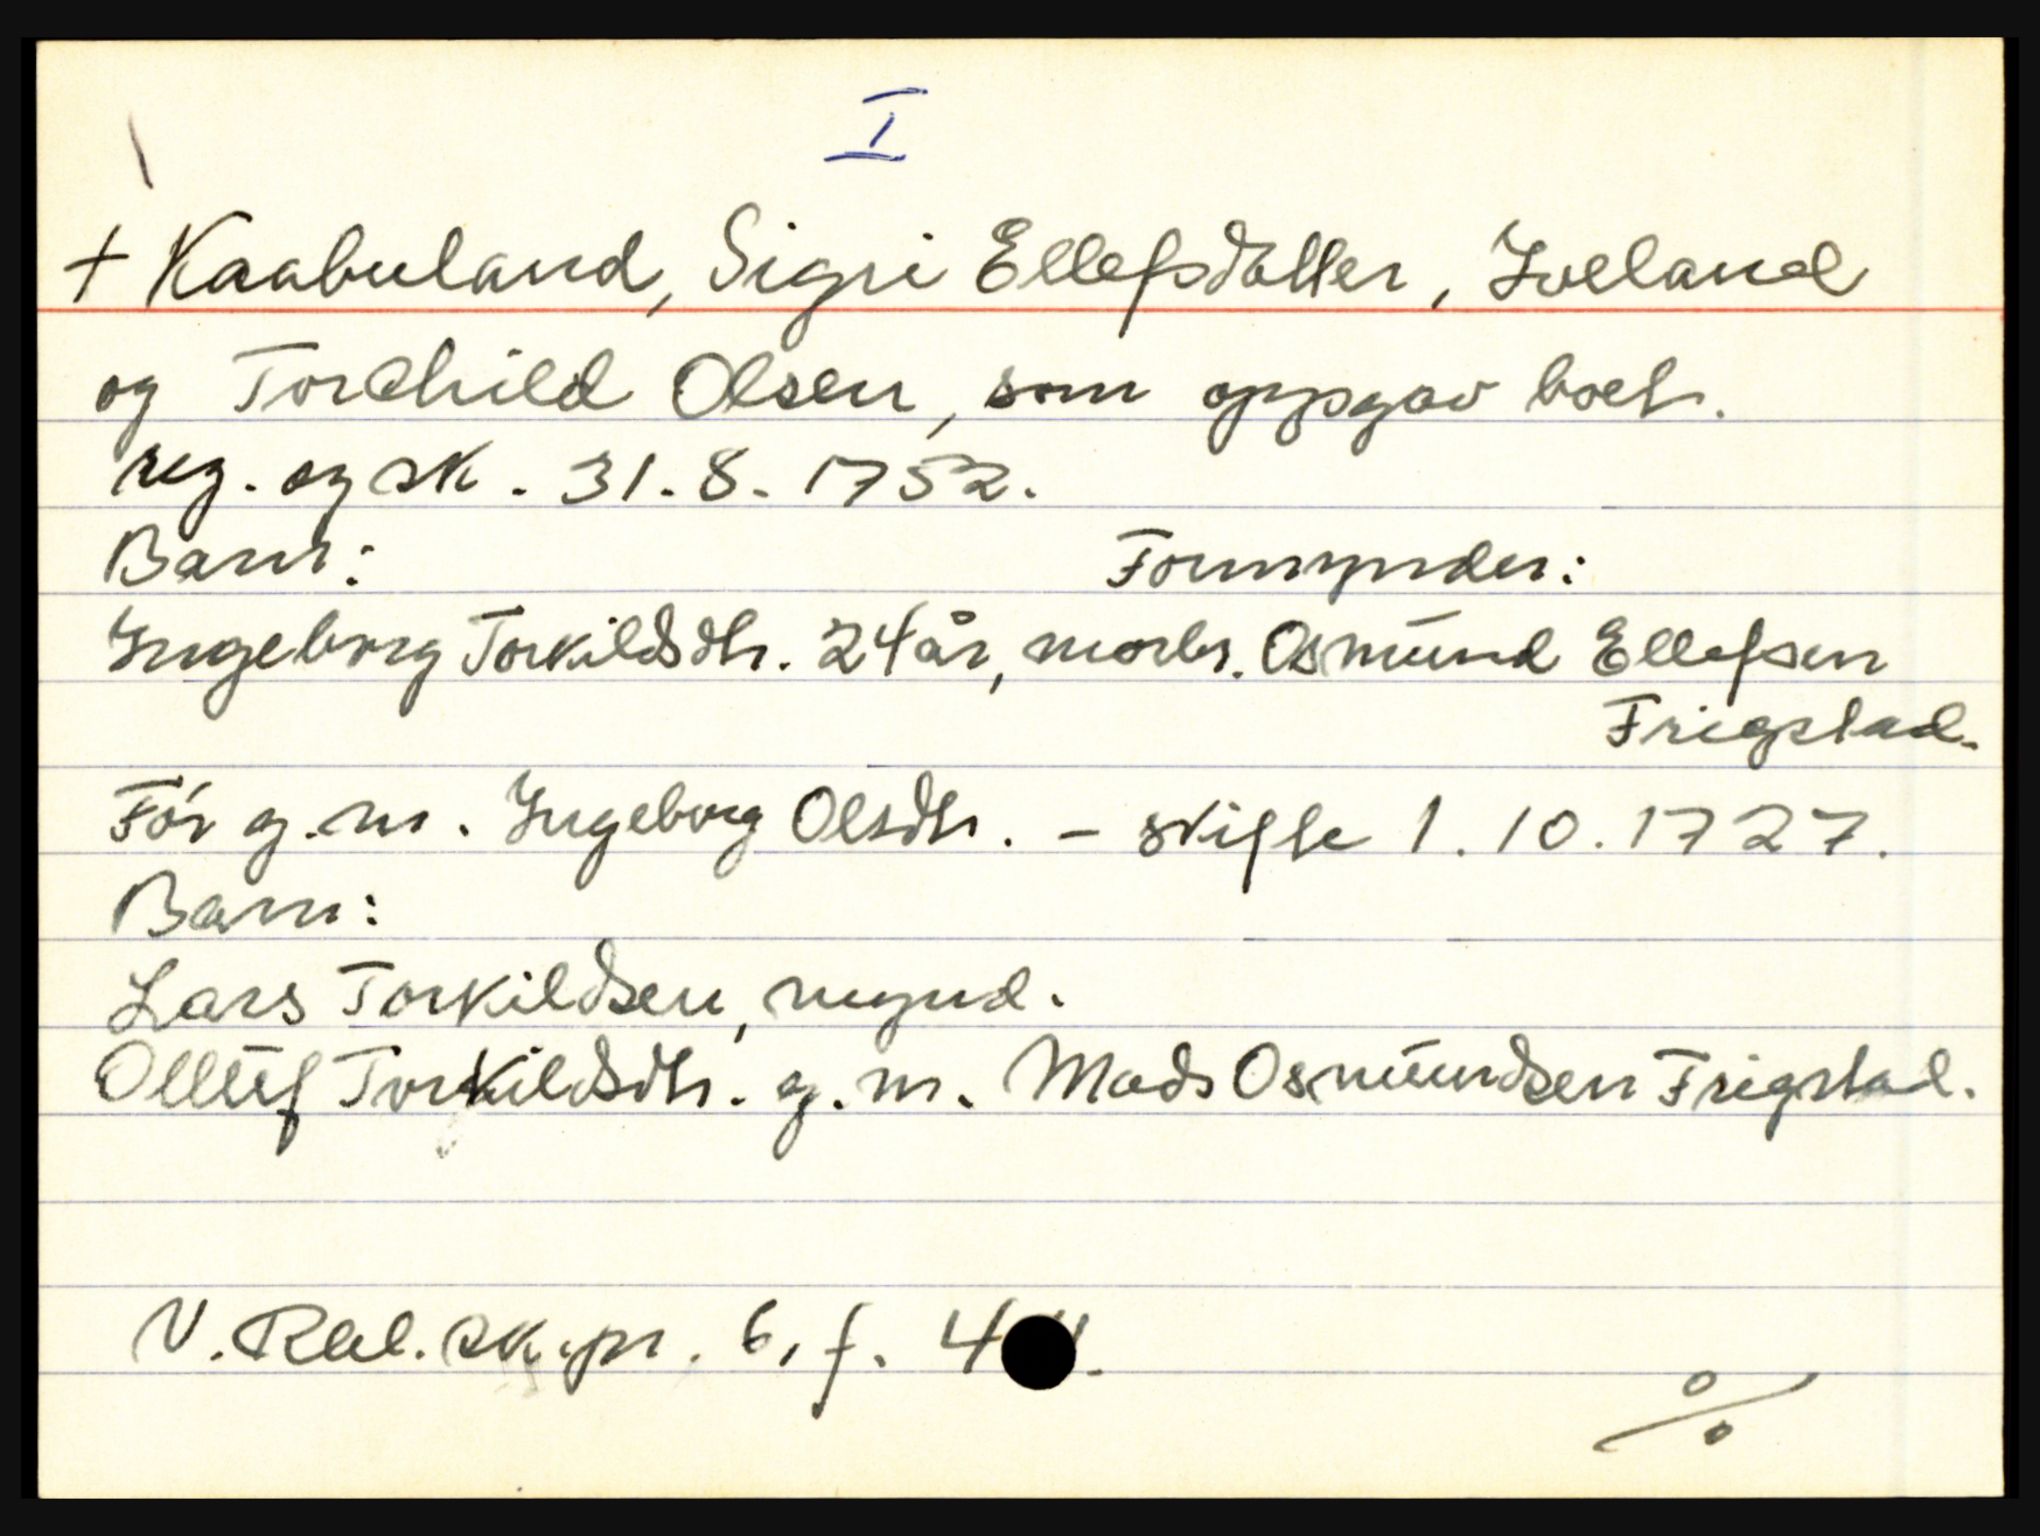 I
+ Kaabuland, Sigri Ellefsdatter, Iveland
og Torchild Olsen, som oppgav boet.
reg. og sk. 31.8.1752.
Barn: Formynder:
Ingeborg Torkildsdtr. 24 år, morbr. Osmund Ellefsen
Frigstad.
Før g.m. Ingeborg Olsdtr. - skifte 1.10.1727.
Barn:
Lars Torkildsen, mynd.
Olluf Torkildsdtr. g.m. Mads Osmundsen Frigstad.
V. Rbl. sk.pr. 6, f.
%